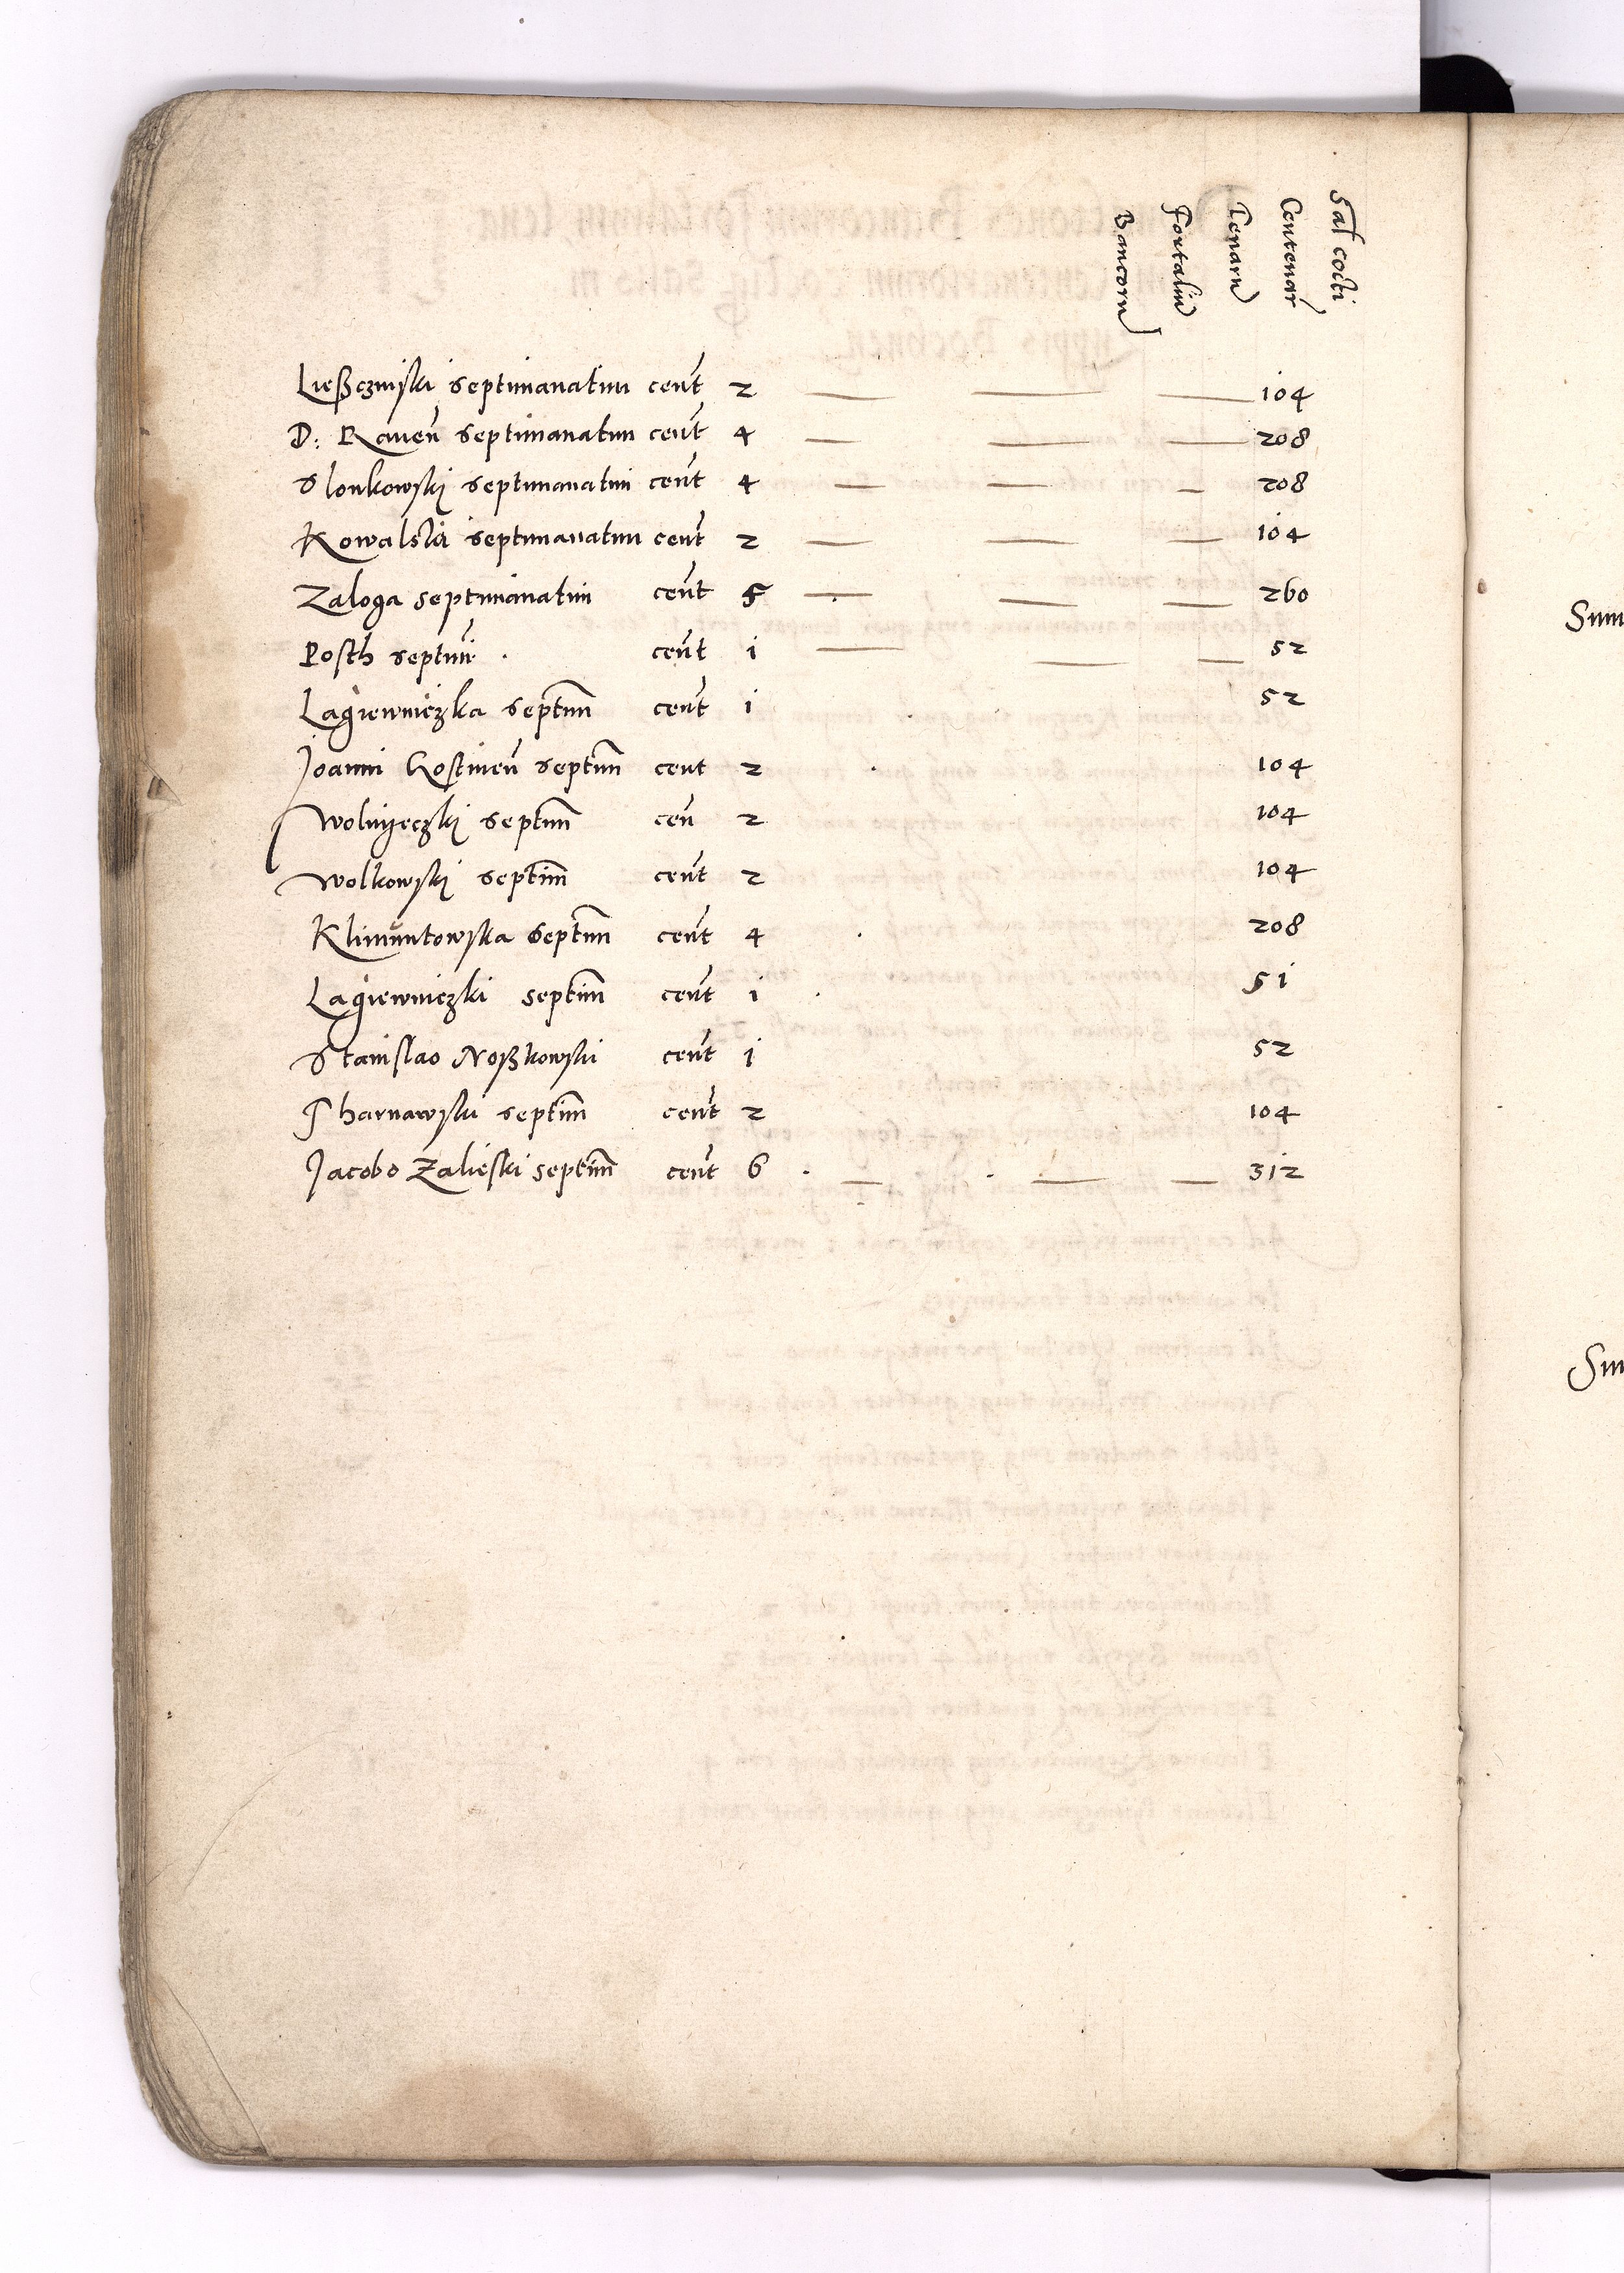 Bancorũ
Fortaliũ
Lenarũ
Centenar
Sal cocti
Ließczinski septimanatim cent̃ 2 104
D: Raven̄ septimanatim cent̃ 4 208
Slonkowskj septimanatim cent̃ 4 208
Kowalski septimanatim cent̃ 2 104
Zaloga septimanatim cent̃ 5 260
Posth septim̄ cent̃ i 52
Lagiewniczka septim̄ cent̃ i 52
Joanni Kostinen̄ septim̄ cent 2 104
Wolnyeczkj septim̄ cen̄ 2 104
Wolkowskj septim̄ cent̃ 2 104
Klimuntowska septim̄ cent̃ 4 208
Lagiewniczki septim̄ cent̃ i 5i
Stanislao Noßkowski cent̃ j 52
Tharnawski septim̄ cent̃ 2 104
Jacobo Zalieski septim̄ cent̃ 6 312